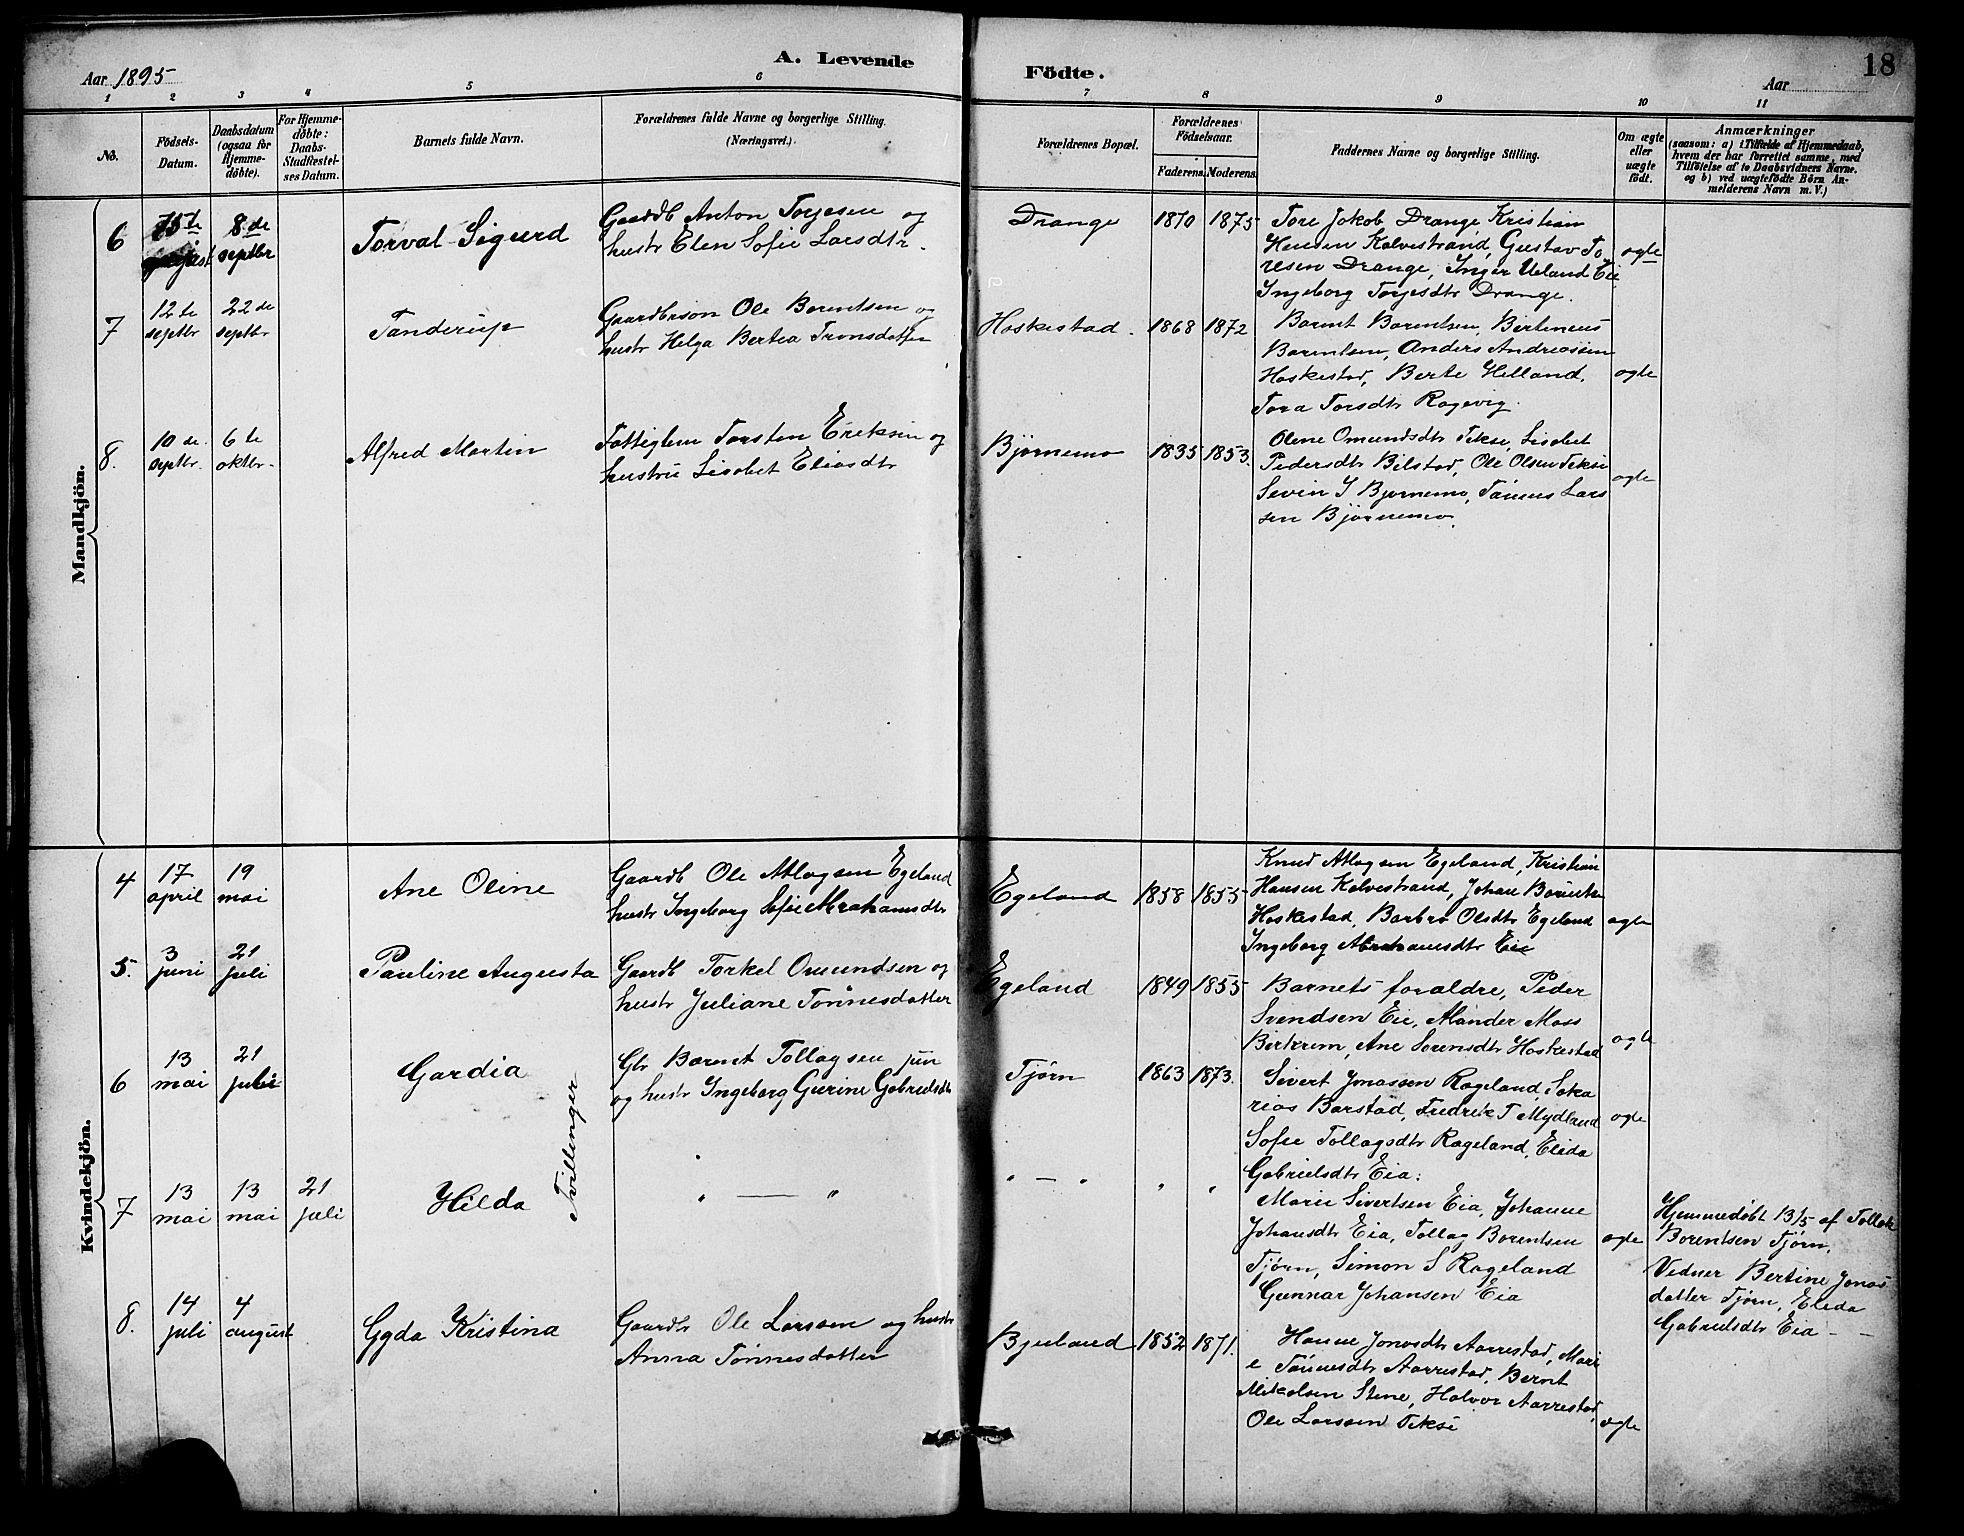 18
A. Levende Födte.
Aar 1895
Aar
1 2 3 4 5 6 7 8 9 10 11
No.
Födsels-Datum.
Daabsdatum (ogsaa for Hjemme-döbte).
For Hjemme-döbte: Daabs-Stadfæstel-ses Datum.
Barnets fulde Navn.
Forældrenes fulde Navne og borgerlige Stilling. (Næringsvei.)
Forældrenes Bopæl.
Forældrenes Födselsaar.
Faderens. Moderens.
Faddernes Navne og borgerlige Stilling.
Om ægte eller uægte födt.
Anmærkninger
(saasom: a) i Tilfælde af Hjemmedaab,
hvem der har forrettet samme, med
Tilföielse af to Daabsvidners Navne.
og b) ved uægtefödte Börn An-
melderens Navn m. V.)
Mandkjön.
6
8de septbr
Torval Sigurd
Gaardb Anton Torjesen og
hustr Elen Sofie Larsdtr.
Drange
1870 1875
Tore Jakob Drange Kristian
Hansen Kalvestrand, Gustav To
resen Drange, Inger Ueland Eie
Ingeborg Torjesdtr Drange.
ægte
7
12te septbr
22de septbr
Tanderup
Gaardbrson Ole Berentsen og
hustr Helga Bertea Tronsdatter
Hæskestad.
1868 1872
Barent Barentsen, Bertineus
Barentsen, Anders Andreassen
Hæskestad, Berte Helland,
Tora Torsdtr Ragevig.
ægte
8.
10de septbr.
6te oktbr.
Alfred Martin
Fattiglem Torsten Eriksen og
hustru Lisabet Eliasdtr
Bjørnemo
1835 1853.
Olene Omundsdtr Tekse, Lisabet
Pedersdtr Bilstad, Ole Olsen Tekse
Sevin I Bjørnemo, Tønnes Lars
sen Bjørnemo.
ægte
Kvindekjön.
4
17 april
19 mai
Ane Oline
Gaardb Ole Atlagsen Egeland
hustr Ingeborg Sofie Abrahamsdtr
Egeland
1858 1855
Knud Atlagsen Egeland, Kristian
Hansen Kalvestrand, Johan Barentsen
Hæskestad, Barbra Olsdtr Egeland
Ingeborg Abrahamsdtr Eie
ægte
5.
3 juni
21 juli
Pauline Augusta
Gaardb Torkel Omundsen og
hustr Juliane Tønnesdatter
Egeland
1849 1855
Barnets forældre, Peder
Svendsen Eie, Mander Moss
Birkrem, Ane Sørensdtr Hæskestad
ægte
6
13 mai
21 juli
Gardia
Tvillinger
Gbr Barent Tollagsen jun
og hustr Ingeborg Gurine Gabrielsdtr
Tjørn
1863 1873.
Sivert Jonassen Rageland, Saka
rias Barstad, Fredrik T Mydland
Sofie Tollagsdtr Rageland, Elida
Gabrielsdtr Eia.
ægte
7
13 mai
13 mai
21 juli
Hilda
" — "
" — " " "
Marie Sivertsen Eia, Johanne
Johansdtr Eia, Tollag Barentsen
Tjørn, Simon S Rageland
Gunnar Johansen Eia
ægte
Hjemmedøbt 13/5 af Tollak
Barentsen Tjørn.
Vidner Bertine Jonas
datter Tjørn, Elida
Gabrielsdtr Eia - -
8.
14 juli
4 august
Gyda Kristina
Gaardbr Ole Larsen og hustr
Anna Tønnesdatter
Bjuland
1852 1871.
Hanne Jonasdtr Aarrestad, Mari
e Tønnesdtr Aarrestad, Bernt
Mikalsen Stene, Halvor Aarrestad,
Ole Larssen Tekse
ægte